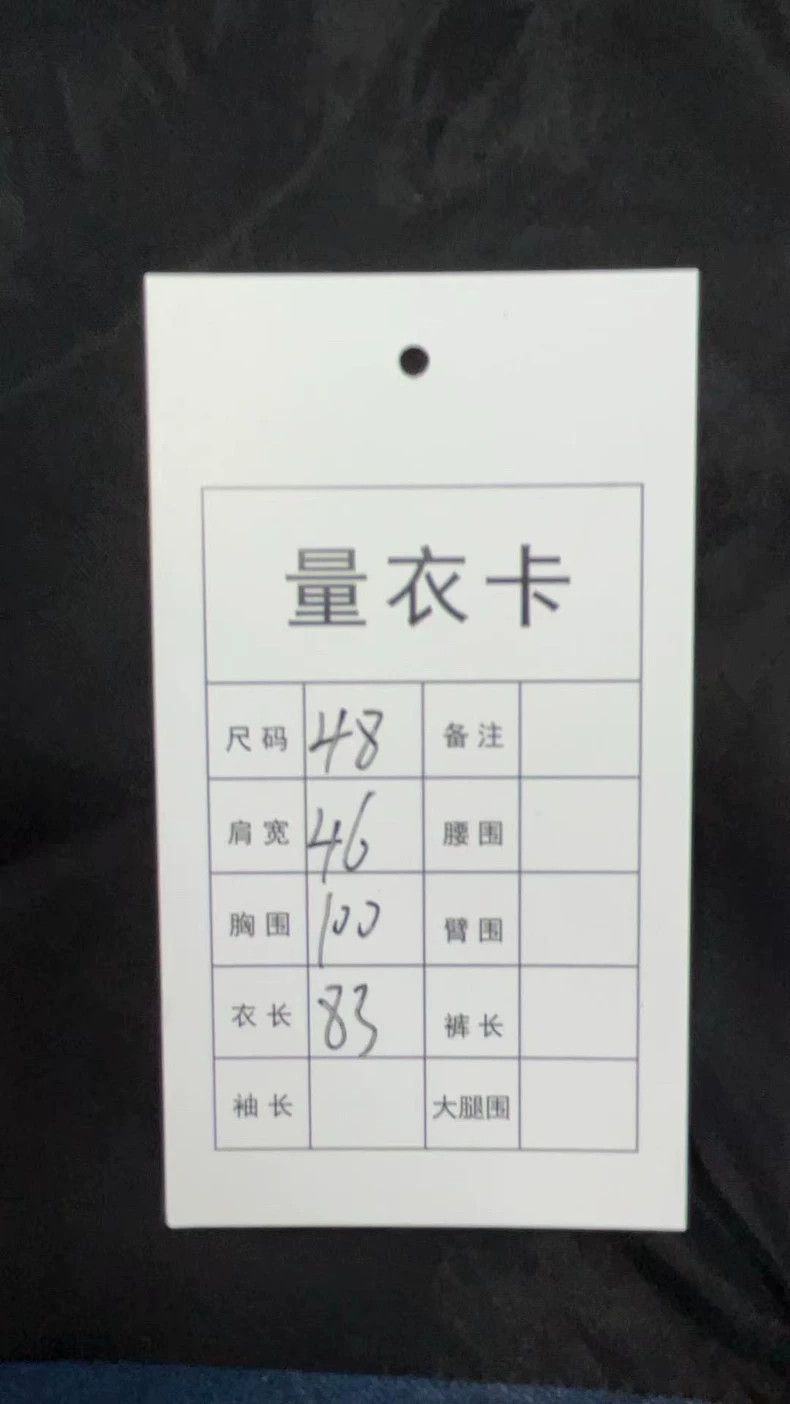 量衣卡
尺码 48 备注
肩宽 46 腰围
胸围 100 臂围
衣长 83 裤长
袖长 大腿围